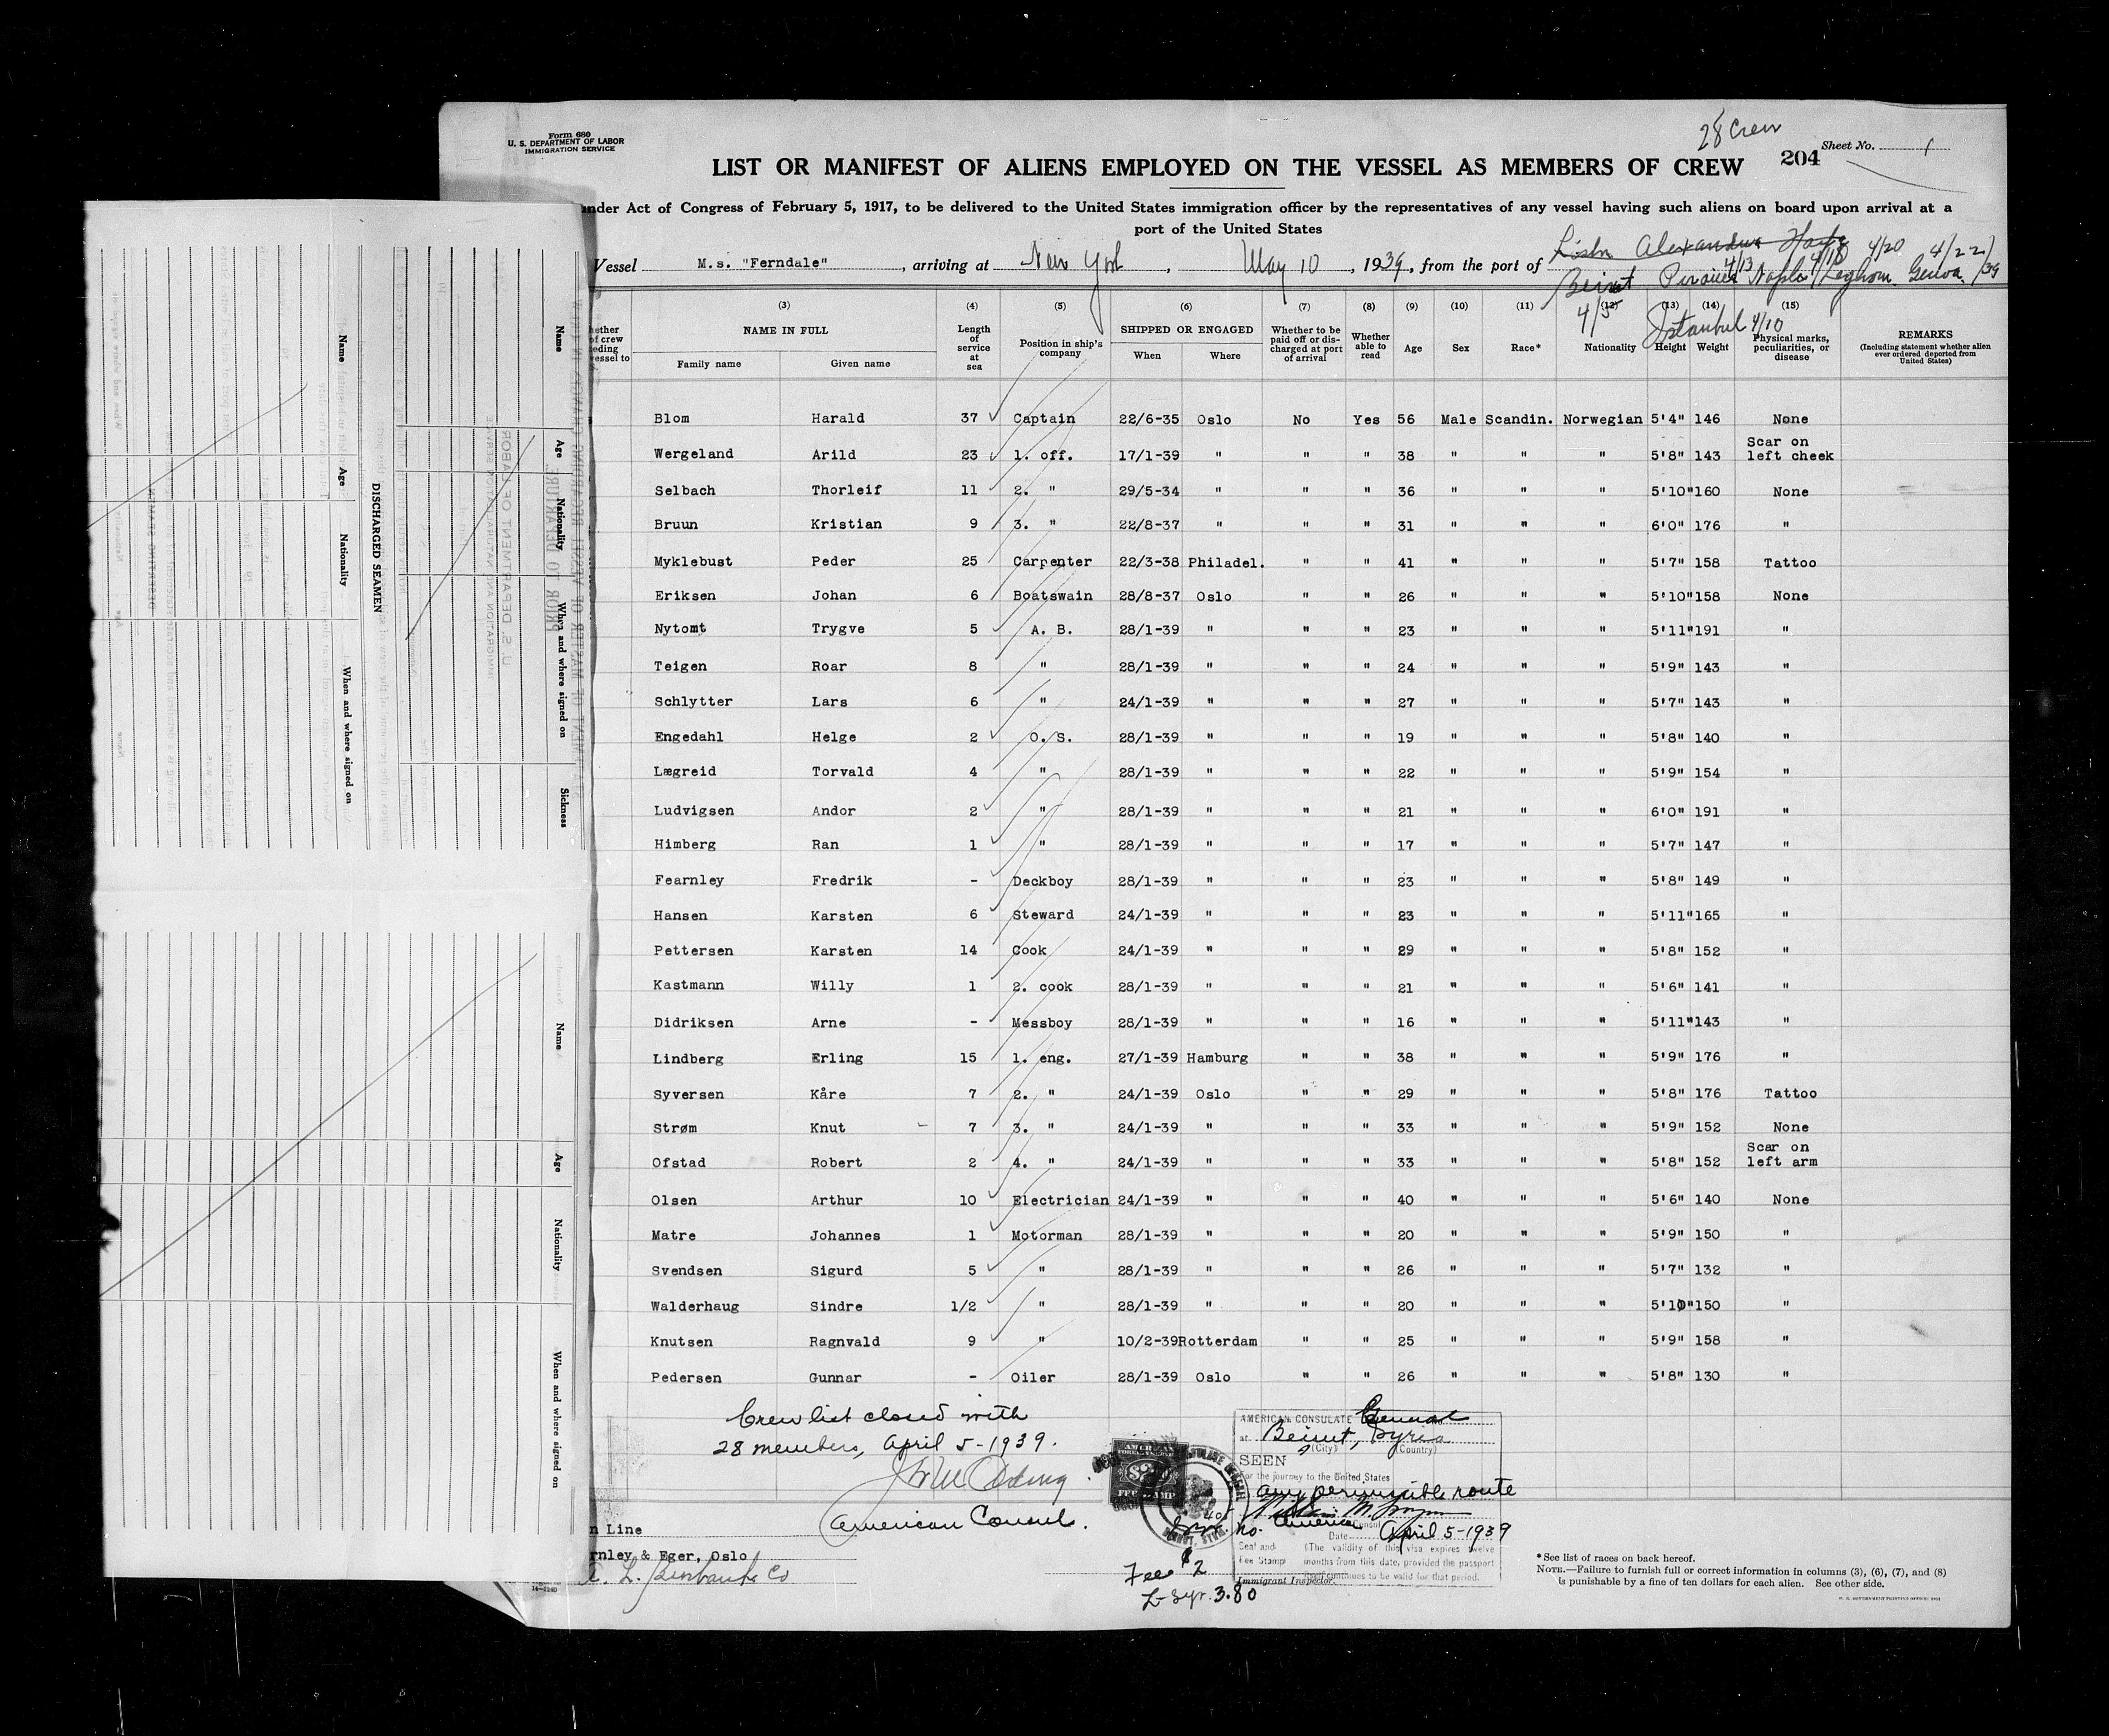 Form 680
U. S. DEPARTMENT OF LABOR
IMMIGRATION SERVICE
28 Crew
Sheet No. 1
204
LIST OR MANIFEST OF ALIENS EMPLOYED ON THE VESSEL AS MEMBERS OF CREW
under Act of Congress of February 5, 1917, to be delivered to the United States immigration officer by the representatives of any vessel having such aliens on board upon arrival at a
port of the United States
Vessel M.s. "Ferndale", arriving at New York, May 10, 1939, from the port of
Alexandria Haifa 4/20 4/22/39
Beirut 4/5 Piraeus 4/13 Naples 4/18 Leghorn. Genoa.
Istanbul 4/10
(3) (4) (5) (6) (7) (8) (9) (10) (11) (12) (13) (14) (15)
NAME IN FULL Family name Given name Length of service at sea Position in ship's company SHIPPED OR ENGAGED When Where Whether to be paid off or discharged at port of arrival Whether able to read Age Sex Race* Nationality Height Weight Physical marks, peculiarities, or disease REMARKS (Including statement whether alien ever ordered deported from United States)
Blom Harald 37 Captain 22/6-35 Oslo No Yes 56 Male Scandin. Norwegian 5'4" 146 None
Wergeland Arild 23 1. off. 17/1-39 " " " 38 " " " 5'8" 143 Scar on left cheek
Selbach Thorleif 11 2. " 29/5-34 " " " 36 " " " 5'10" 160 None
Bruun Kristian 9 3. " 22/8-37 " " " 31 " " " 6'0" 176 "
Myklebust Peder 25 Carpenter 22/3-38 Philadel. " " 41 " " " 5'7" 158 Tattoo
Eriksen Johan 6 Boatswain 28/8-37 Oslo " " 26 " " " 5'10" 158 None
Nytomt Trygve 5 A. B. 28/1-39 " " " 23 " " " 5'11" 191 "
Teigen Roar 8 " 28/1-39 " " " 24 " " " 5'9" 143 "
Schlytter Lars 6 " 24/1-39 " " " 27 " " " 5'7" 143 "
Engedahl Helge 2 O. S. 28/1-39 " " " 19 " " " 5'8" 140 "
Lægreid Torvald 4 " 28/1-39 " " " 22 " " " 5'9" 154 "
Ludvigsen Andor 2 " 28/1-39 " " " 21 " " " 6'0" 191 "
Himberg Ran 1 " 28/1-39 " " " 17 " " " 5'7" 147 "
Fearnley Fredrik - Deckboy 28/1-39 " " " 23 " " " 5'8" 149 "
Hansen Karsten 6 Steward 24/1-39 " " " 23 " " " 5'11" 165 "
Pettersen Karsten 14 Cook 24/1-39 " " " 29 " " " 5'8" 152 "
Kastmann Willy 1 2. cook 28/1-39 " " " 21 " " " 5'6" 141 "
Didriksen Arne - Messboy 28/1-39 " " " 16 " " " 5'11" 143 "
Lindberg Erling 15 1. eng. 27/1-39 Hamburg " " 38 " " " 5'9" 176 "
Syversen Kåre 7 2. " 24/1-39 Oslo " " 29 " " " 5'8" 176 Tattoo
Strøm Knut 7 3. " 24/1-39 " " " 33 " " " 5'9" 152 None
Ofstad Robert 2 4. " 24/1-39 " " " 33 " " " 5'8" 152 Scar on left arm
Olsen Arthur 10 Electrician 24/1-39 " " " 40 " " " 5'6" 140 None
Matre Johannes 1 Motorman 28/1-39 " " " 20 " " " 5'9" 150 "
Svendsen Sigurd 5 " 28/1-39 " " " 26 " " " 5'7" 132 "
Walderhaug Sindre 1/2 " 28/1-39 " " " 20 " " " 5'10" 150 "
Knutsen Ragnvald 9 " 10/2-39 Rotterdam " " 25 " " " 5'9" 158 "
Pedersen Gunnar - Oiler 28/1-39 Oslo " " 26 " " " 5'8" 130 "
Crew list closed with
28 members, April 5-1939.
American Consul.
AMERICAN CONSULATE General
at Beirut, Syria
(City) (Country)
SEEN
For the journey to the United States
any permissible route
Date April 5-1939
Seal and Fee Stamp
(The validity of this visa expires twelve
months from this date, provided the passport
continues to be valid for that period.
Immigrant Inspector.
Fee $2
L-Syr. 3.80
n Line
rnley & Eger, Oslo
14-1240
*See list of races on back hereof.
NOTE.—Failure to furnish full or correct information in columns (3), (6), (7), and (8)
is punishable by a fine of ten dollars for each alien. See other side.
DISCHARGED SEAMEN
Name Age Nationality When and where signed on
Name Age Nationality When and where signed on Sickness
Name Age Nationality When and where signed on
U. S. DEPARTMENT OF LABOR
IMMIGRATION AND NATURALIZATION SERVICE
PRIOR TO DEPARTURE
DESERTING SEAMEN